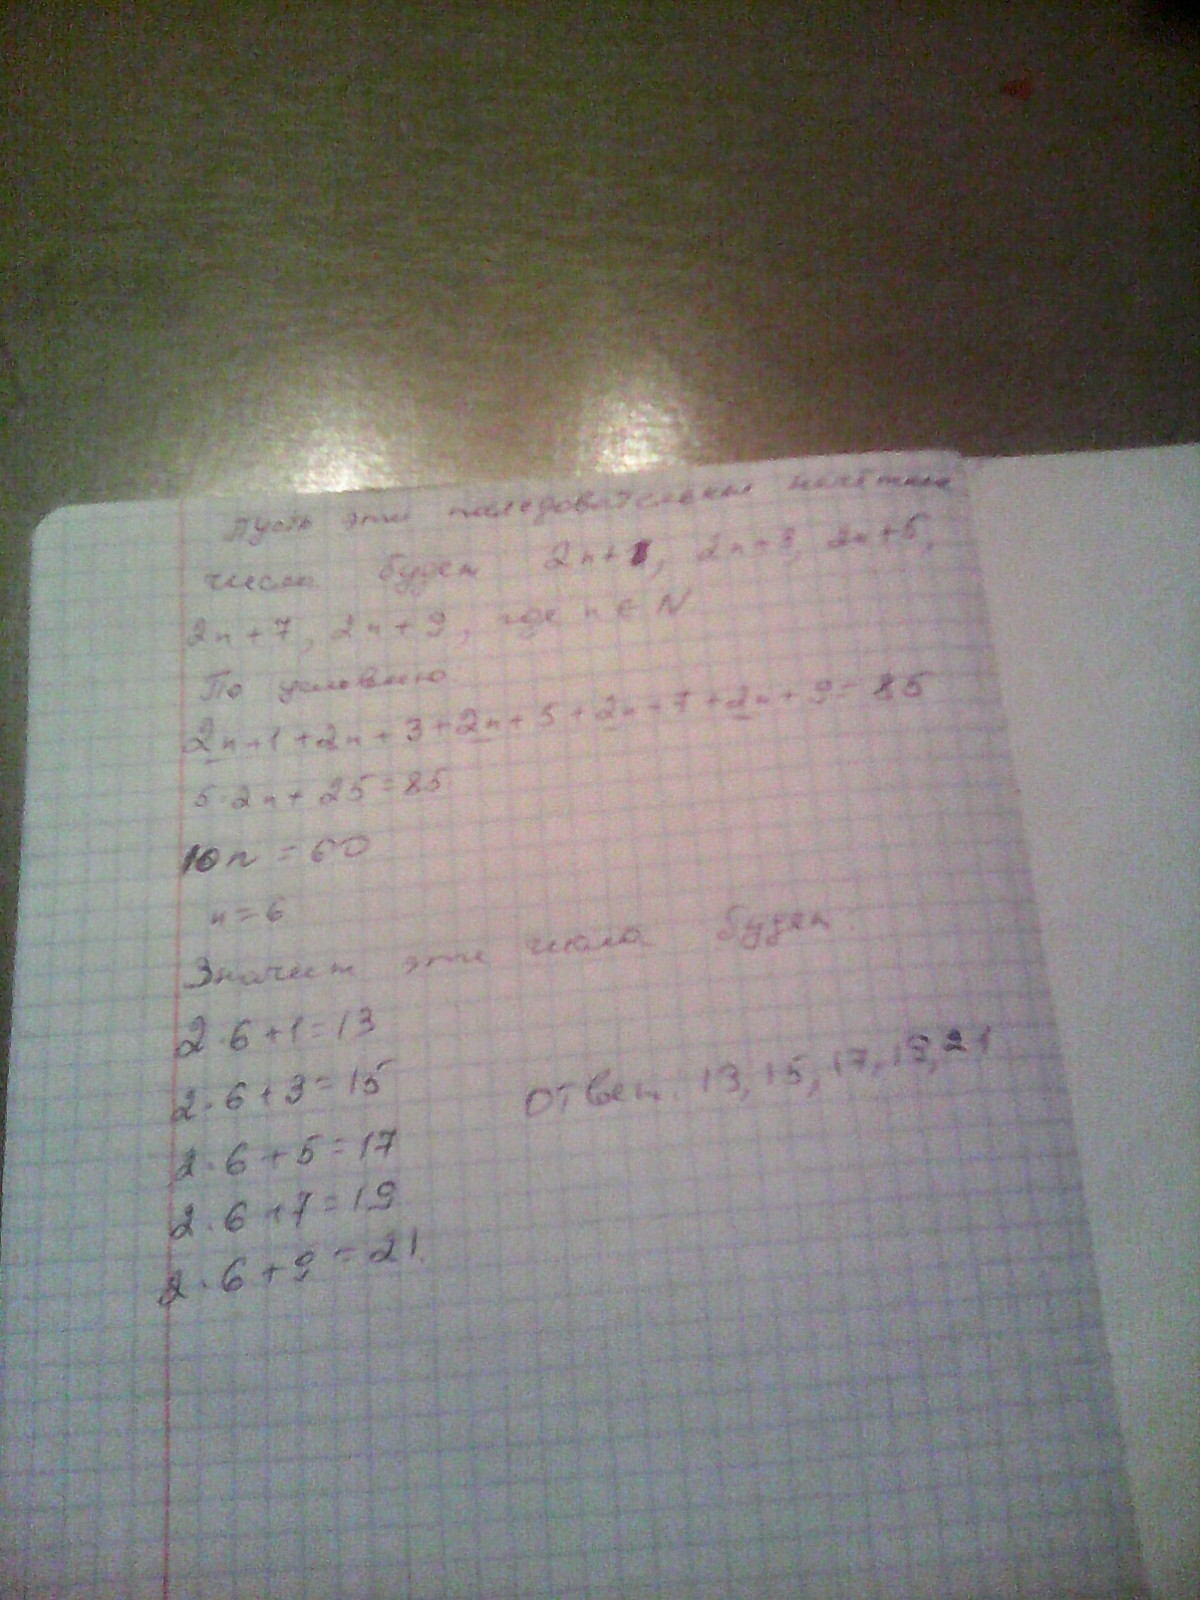 Пусть эти последовательные нечётные
числа будут 2n+1, 2n+3, 2n+5,
2n+7, 2n+9, где n ∈ N
По условию
2n+1+2n+3+2n+5+2n+7+2n+9=85
5·2n+25=85
10n=60
n=6
Значит эти числа будут
2·6+1=13
2·6+3=15
Ответ. 13, 15, 17, 19, 21
2·6+5=17
2·6+7=19
2·6+9=21.